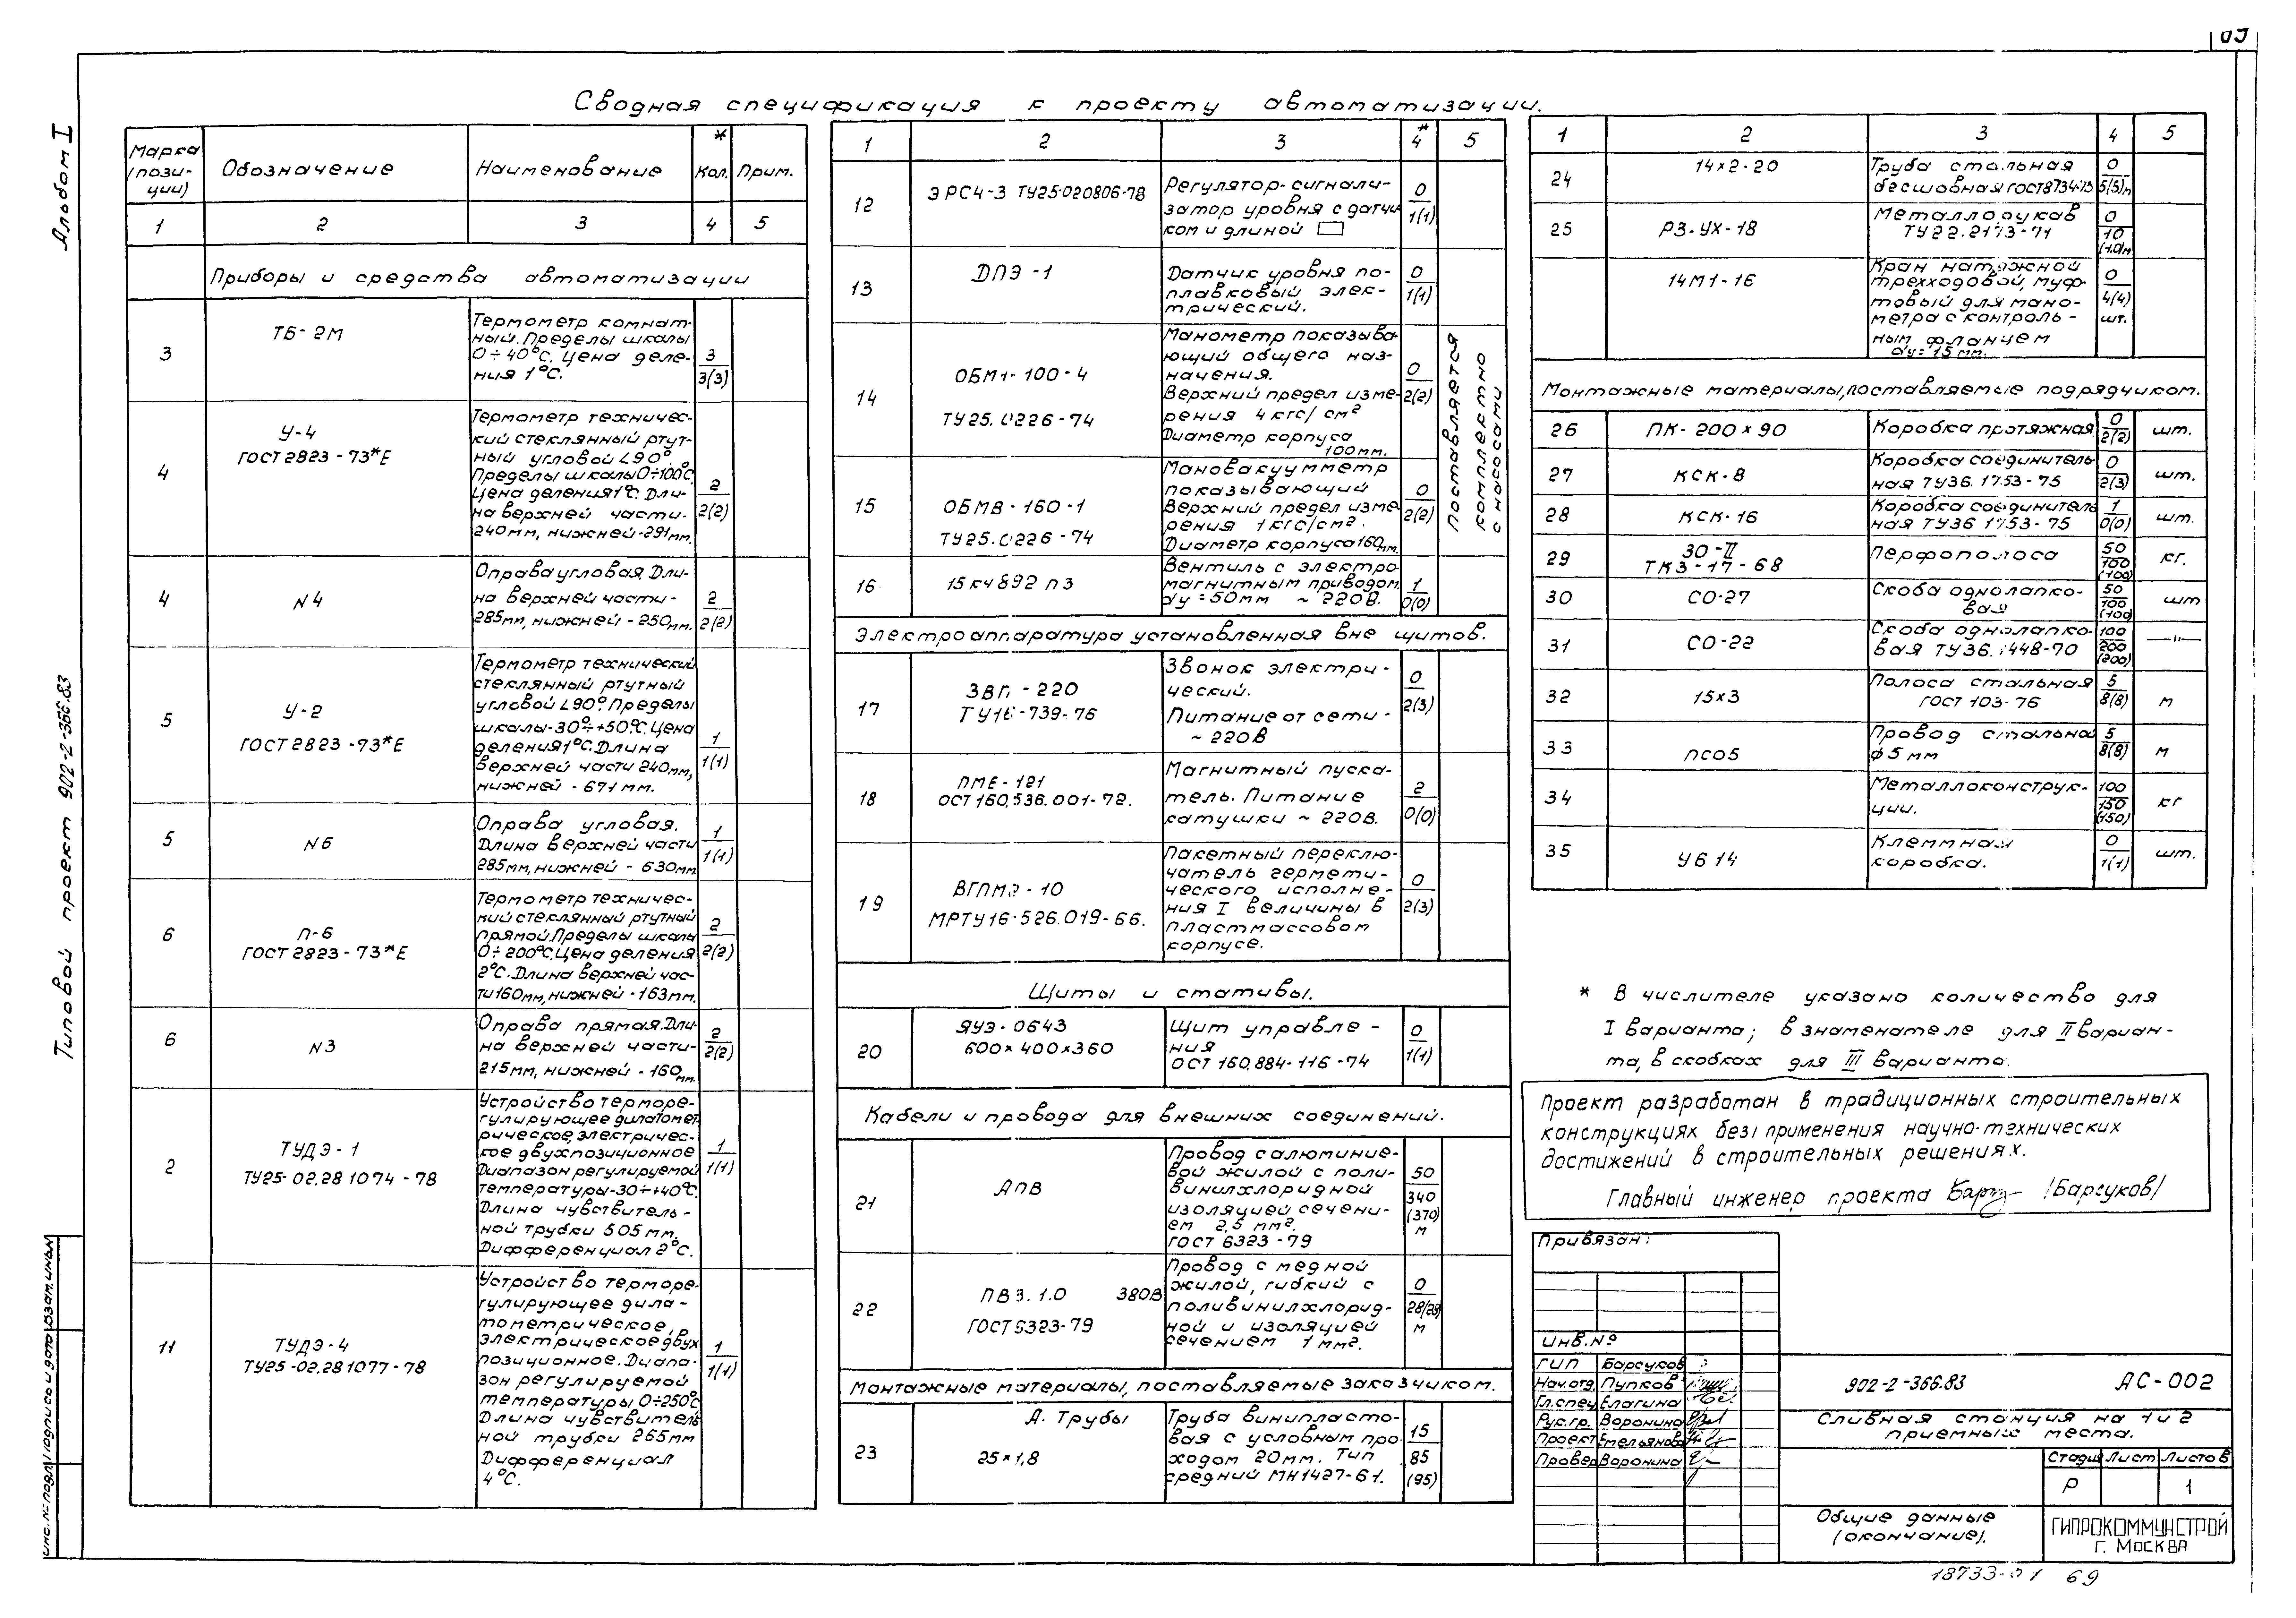 69
Альбом I
Типовой проект 902-2-366.83
Сводная спецификация к проекту автоматизации.
Марка (позиции)
Обозначение
Наименование
* Кол.
Прим.
1 2 3 4 5
Приборы и средства автоматизации
3
ТБ-2М
Термометр комнат-
ный. Пределы шкалы
0÷40°С. Цена деле-
ния 1°С.
3
3(3)
4
У-4
ГОСТ 2823-73*Е
Термометр техничес-
кий стеклянный ртут-
ный угловой ∠90°.
Пределы шкалы 0÷100°С
Цена деления 1°С. Дли-
на верхней части-
240мм, нижней-291мм.
2
2(2)
4
N4
Оправа угловая. Дли-
на верхней части-
285мм, нижней - 250мм.
2
2(2)
5
У-2
ГОСТ 2823-73*Е
Термометр технический
стеклянный ртутный
угловой ∠90°. Пределы
шкалы-30°÷+50°С. Цена
деления 1°С. Длина
верхней части 240мм,
нижней - 671 мм.
1
1(1)
5
N6
Оправа угловая.
Длина верхней части
285мм, нижней - 630мм
1
1(1)
6
П-6
ГОСТ 2823-73*Е
Термометр техничес-
кий стеклянный ртутный
прямой. Пределы шкалы
0÷200°С. Цена деления
2°С. Длина верхней час-
ти 160мм, нижней-163мм.
2
2(2)
6
N3
Оправа прямая. Дли-
на верхней части-
215мм, нижней - 160мм.
2
2(2)
2
ТУДЭ-1
ТУ25-02.281074-78
Устройство терморе-
гулирующее дилатомет
рическое, электричес-
кое двухпозиционное
Диапазон регулируемой
температуры-30÷+40°С.
Длина чувствитель-
ной трубки 505 мм.
Дифференциал 2°С.
1
1(1)
11
ТУДЭ-4
ТУ25-02.281077-78
Устройство терморе-
гулирующее дила-
тометрическое,
электрическое двух
позиционное. Диапа-
зон регулируемой
температуры 0÷250°С
Длина чувствитель
ной трубки 265мм
Дифференциал
4°С.
1
1(1)
1 2 3 4* 5
12
ЭРСЧ-3 ТУ25-020806-78
Регулятор-сигнали-
затор уровня с датчи
ком и длиной
0
1(1)
13
ДПЭ-1
Датчик уровня по-
плавковый элек-
трический.
0
1(1)
14
ОБМ1-100-4
ТУ25.0226-74
Манометр показыва-
ющий общего наз-
начения.
Верхний предел изме-
рения 4 кгс/см²
Диаметр корпуса
100мм.
0
2(2)
15
ОБМВ-160-1
ТУ25.0226-74
Мановакуумметр
показывающий
Верхний предел изме
рения 1 кгс/см².
Диаметр корпуса 160мм.
0
2(2)
Поставляется
комплектно
с насосами
16
15кч892 п3
Вентиль с электро
магнитным приводом
dу=50мм ~220В.
1
0(0)
Электроаппаратура установленная вне щитов.
17
ЗВП-220
ТУ16-739-76
Звонок электри-
ческий.
Питание от сети-
~220В
0
2(3)
18
ПМЕ-121
ОСТ 160.536.001-72.
Магнитный пуска-
тель. Питание
катушки ~220В.
2
0(0)
19
ВГПМ2-10
МРТУ16-526.019-66.
Пакетный переклю-
чатель гермети-
ческого исполне-
ния I величины в
пластмассовом
корпусе.
0
2(3)
Щиты и стативы.
20
ЯУЭ-0643
600×400×360
Щит управле-
ния
ОСТ 160.884-116-74
0
1(1)
Кабели и провода для внешних соединений.
21
АПВ
Провод с алюминие-
вой жилой с поли-
винилхлоридной
изоляцией сечени-
ем 2,5 мм².
ГОСТ 6323-79
50
340
(370)
м
22
ПВ3.1.0 380В
ГОСТ 6323-79
Провод с медной
жилой, гибкий с
поливинилхлорид-
ной и изоляцией
сечением 1 мм².
0
28(28)
м
Монтажные материалы, поставляемые заказчиком.
23
А. Трубы
25×1,8
Труба винипласто-
вая с условным про
ходом 20мм. Тип
средний МН1427-61.
15
85
(95)
1 2 3 4 5
24
14×2-20
Труба стальная
бесшовная ГОСТ8734-75
0
5(5)м
25
РЗ-УХ-18
Металлорукав
ТУ22.2173-71
0
10
(10)м
14М1-16
Кран натяжной
трехходовой, муф-
товый для мано-
метра с контроль-
ным фланцем
dу=15 мм.
0
4(4)
шт.
Монтажные материалы, поставляемые подрядчиком.
26
ПК-200×90
Коробка протяжная
0
2(2)
шт.
27
КСК-8
Коробка соединитель
ная ТУ36.1753-75
0
2(3)
шт.
28
КСК-16
Коробка соединитель
ная ТУ36 1753-75
1
0(0)
шт.
29
30-II
ТКЗ-17-68
Перфополоса
50
100
(100)
кг.
30
СО-27
Скоба однолапко-
вая
50
100
(100)
шт
31
СО-22
Скоба однолапко-
вая ТУ36.1448-70
100
200
(200)
—"—
32
15×3
Полоса стальная
ГОСТ 103-76
5
8(8)
м
33
ПСО5
Провод стальной
ф5мм
5
8(8)
м
34
Металлоконструк-
ции.
100
150
(150)
кг
35
У614
Клеммная
коробка.
0
1(1)
шт.
* В числителе указано количество для
I варианта; в знаменателе для II вариан-
та, в скобках для III варианта.
Проект разработан в традиционных строительных
конструкциях без применения научно-технических
достижений в строительных решениях.
Главный инженер проекта /Барсуков/
Привязан:
Инв.№
ГИП Барсуков
Нач.отд. Пупков
Гл.спец Елагина
Рук.гр. Воронина
Проект Емельянова
Провер Воронина
902-2-366.83 АС-002
Сливная станция на 1 и 2
приемных места.
Стадия Лист Листов
Р 1
Общие данные
(окончание).
ГИПРОКОММУНСТРОЙ
Г. МОСКВА
Инв.№ подл. Подпись и дата Взам.инв.№
18733-01 69